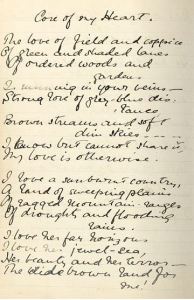 Core of my Heart.
The love of field and coppice
Of green and shaded lanes
Of ordered woods and
gardens
Is running in your veins —
Strong love of grey-blue distance
Brown streams and soft
dim skies —
I know but cannot share it,
My love is otherwise.
I love a sunburnt country,
A land of sweeping plains
Of ragged mountain-ranges
Of droughts and flooding
rains.
I love her far horizons
I love her jewel-sea
Her beauty and her terror
The wide brown land for
me!